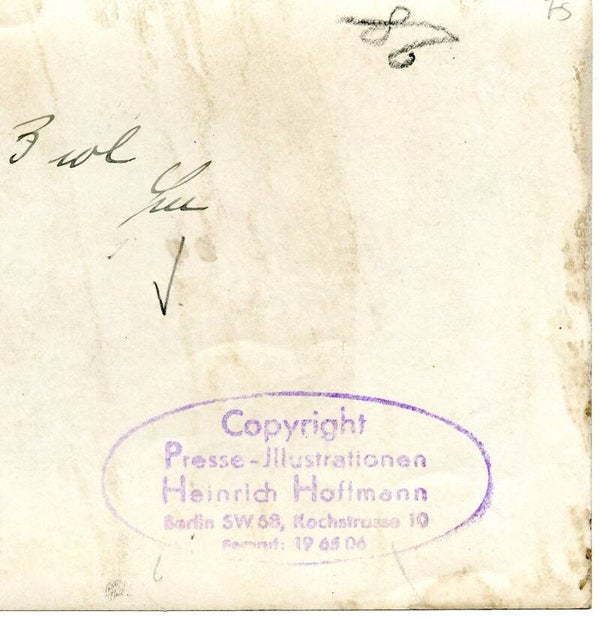 75
3 wl
Copyright
Presse-Jllustrationen
Heinrich Hoffmann
Berlin SW 68, Kochstrasse 10
Fernruf: 19 65 06